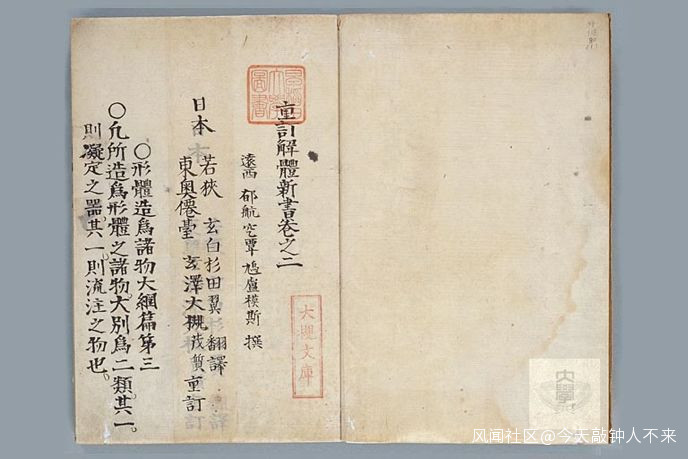 重訂解體新書卷之二
遠西 鄃航空覃鳩盧模斯 撰
日本
若狹 玄白杉田翼 翻譯
東奧僊臺 玄澤大槻茂質 重訂
○形體造爲諸物大綱篇第三
○凡所造爲形體之諸物大別爲二類其一
則凝定之器其一則流注之物也
大槻文庫
風闻社区@今天敲钟人不来